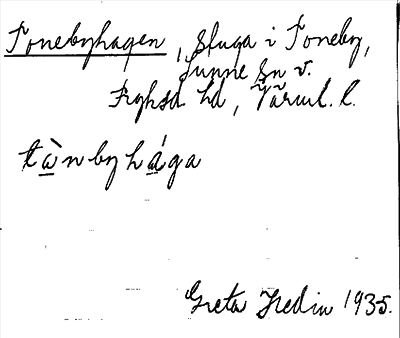 Tonebyhagen, stuga i Toneby,
Sunne sn v.
Fryksd hd, Värml. l.
tὰnbyhá̱ga
Greta Hedin 1935.